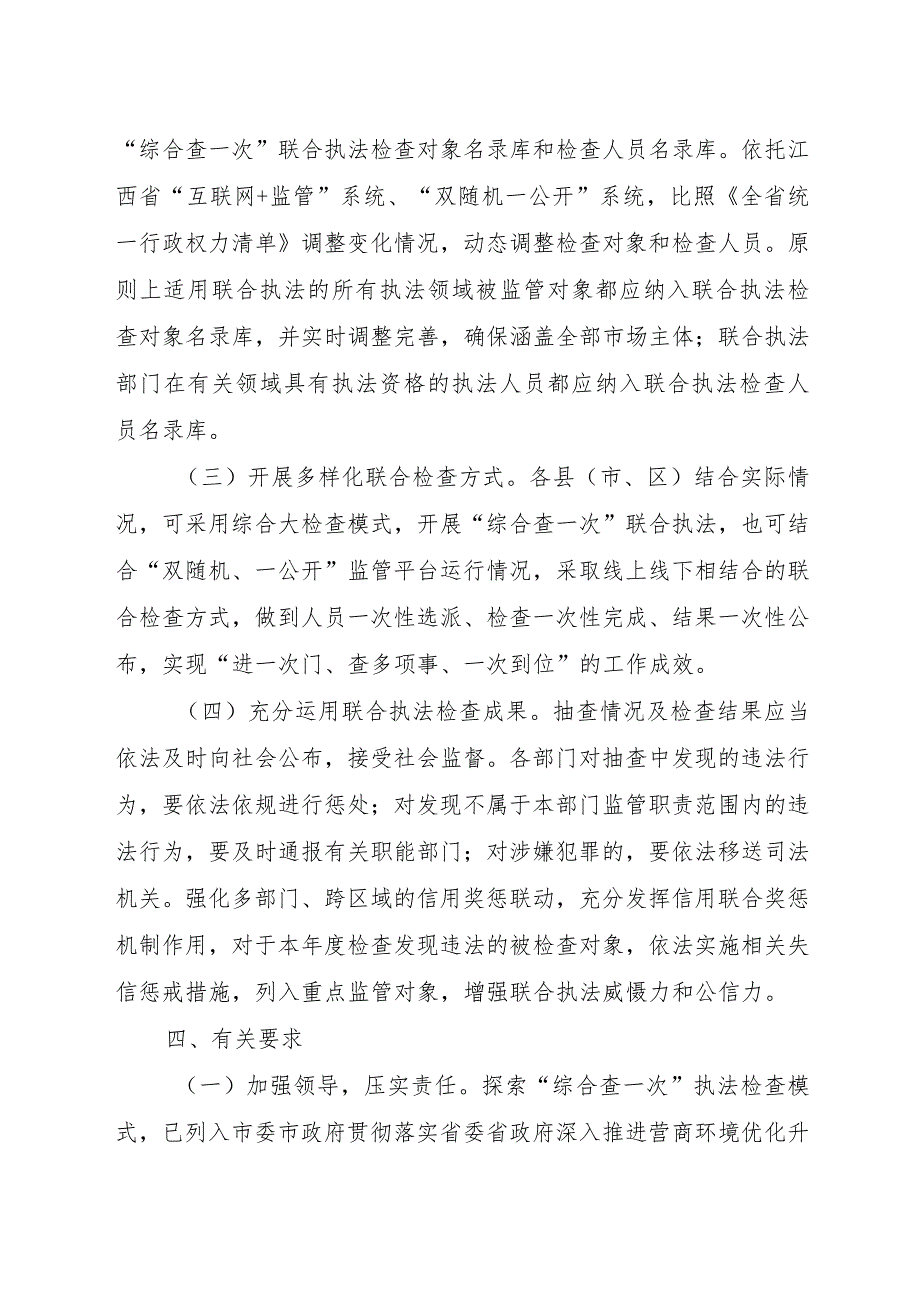 “综合查一次”联合执法检查对象名录库和检查人员名录库。依托江
西省“互联网+监管”系统、“双随机一公开”系统，比照《全省统
一行政权力清单》调整变化情况，动态调整检查对象和检查人员。原
则上适用联合执法的所有执法领域被监管对象都应纳入联合执法检
查对象名录库，并实时调整完善，确保涵盖全部市场主体；联合执法
部门在有关领域具有执法资格的执法人员都应纳入联合执法检查人
员名录库。
（三）开展多样化联合检查方式。各县（市、区）结合实际情
况，可采用综合大检查模式，开展“综合查一次”联合执法，也可结
合“双随机、一公开”监管平台运行情况，采取线上线下相结合的联
合检查方式，做到人员一次性选派、检查一次性完成、结果一次性公
布，实现“进一次门、查多项事、一次到位”的工作成效。
（四）充分运用联合执法检查成果。抽查情况及检查结果应当
依法及时向社会公布，接受社会监督。各部门对抽查中发现的违法行
为，要依法依规进行惩处；对发现不属于本部门监管职责范围内的违
法行为，要及时通报有关职能部门；对涉嫌犯罪的，要依法移送司法
机关。强化多部门、跨区域的信用奖惩联动，充分发挥信用联合奖惩
机制作用，对于本年度检查发现违法的被检查对象，依法实施相关失
信惩戒措施，列入重点监管对象，增强联合执法威慑力和公信力。
四、有关要求
（一）加强领导，压实责任。探索“综合查一次”执法检查模
式，已列入市委市政府贯彻落实省委省政府深入推进营商环境优化升